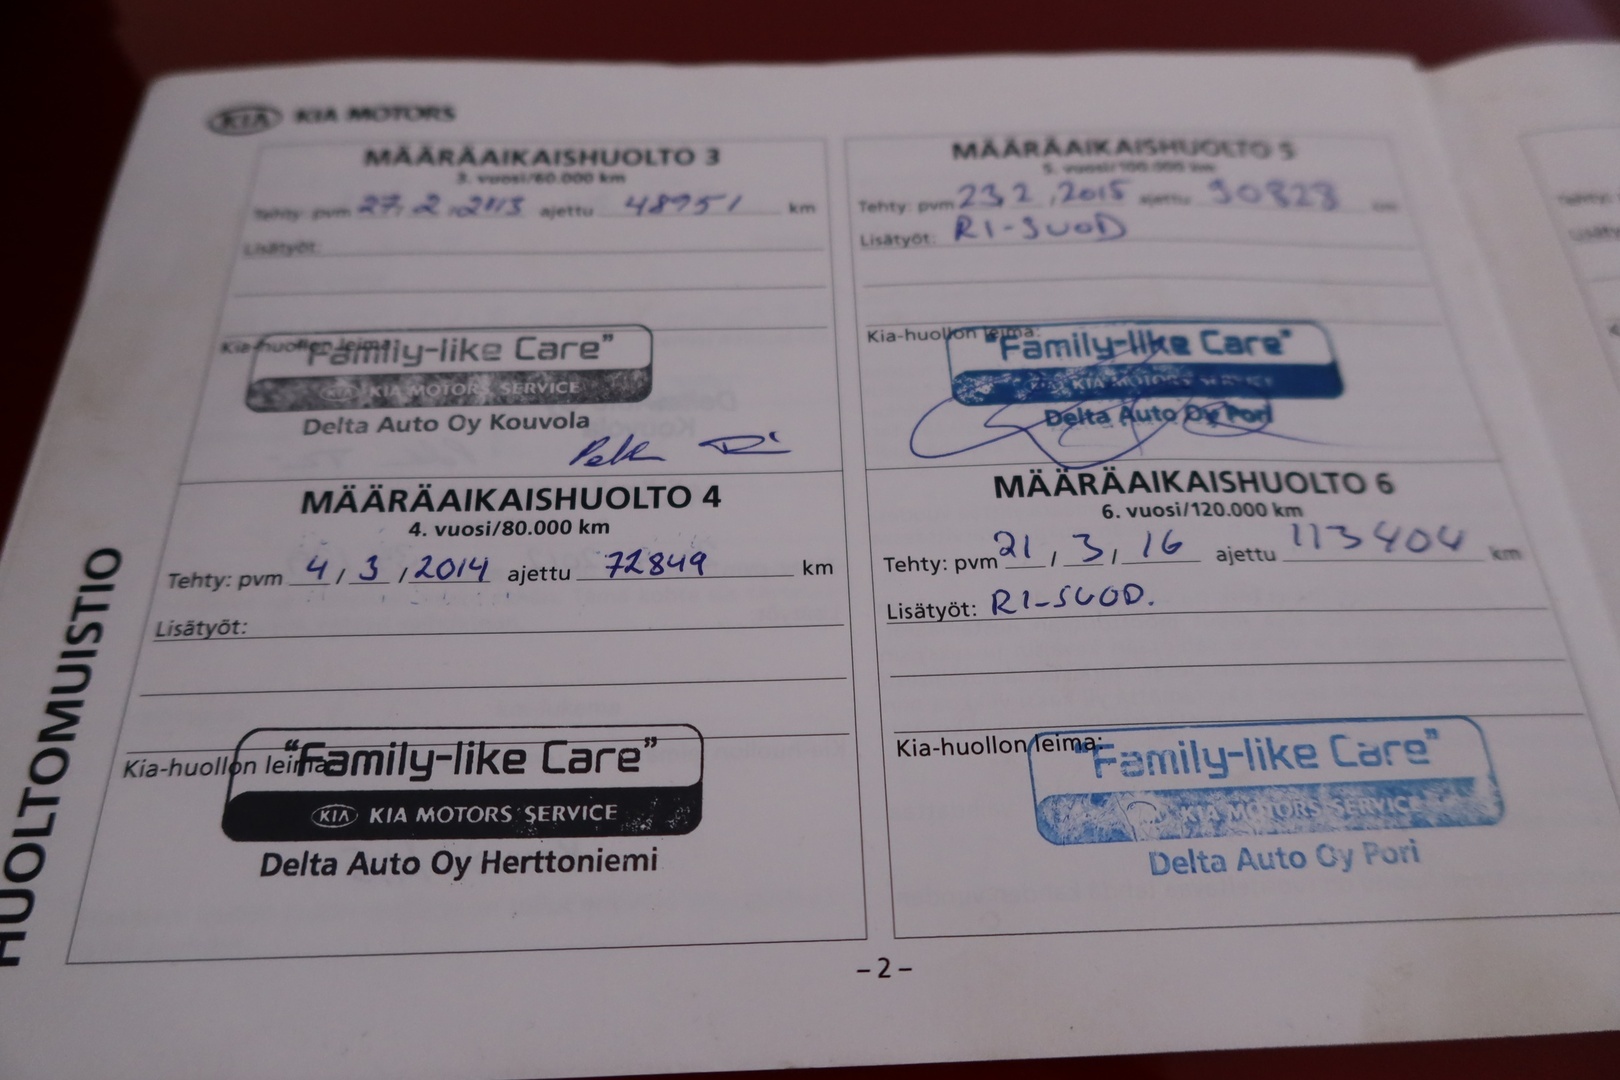 KIA KIA MOTORS
MÄÄRÄAIKAISHUOLTO 3
3. vuosi/60.000 km
Tehty: pvm 27, 2, 2013 ajettu 48951 km
Lisätyöt:
Kia-huollon leima:
"Family-like Care"
KIA KIA MOTORS SERVICE
Delta Auto Oy Kouvola
MÄÄRÄAIKAISHUOLTO 4
4. vuosi/80.000 km
Tehty: pvm 4 / 3 / 2014 ajettu 72849 km
Lisätyöt:
Kia-huollon leima:
"Family-like Care"
KIA KIA MOTORS SERVICE
Delta Auto Oy Herttoniemi
MÄÄRÄAIKAISHUOLTO 5
5. vuosi/100.000 km
Tehty: pvm 23 2, 2015 ajettu 90828 km
Lisätyöt: RI-SUOD
Kia-huollon leima:
"Family-like Care"
KIA KIA MOTORS SERVICE
Delta Auto Oy Pori
MÄÄRÄAIKAISHUOLTO 6
6. vuosi/120.000 km
Tehty: pvm 21 / 3 / 16 ajettu 113404 km
Lisätyöt: RI-SUOD.
Kia-huollon leima:
"Family-like Care"
KIA MOTORS SERVICE
Delta Auto Oy Pori
HUOLTOMUISTIO
– 2 –